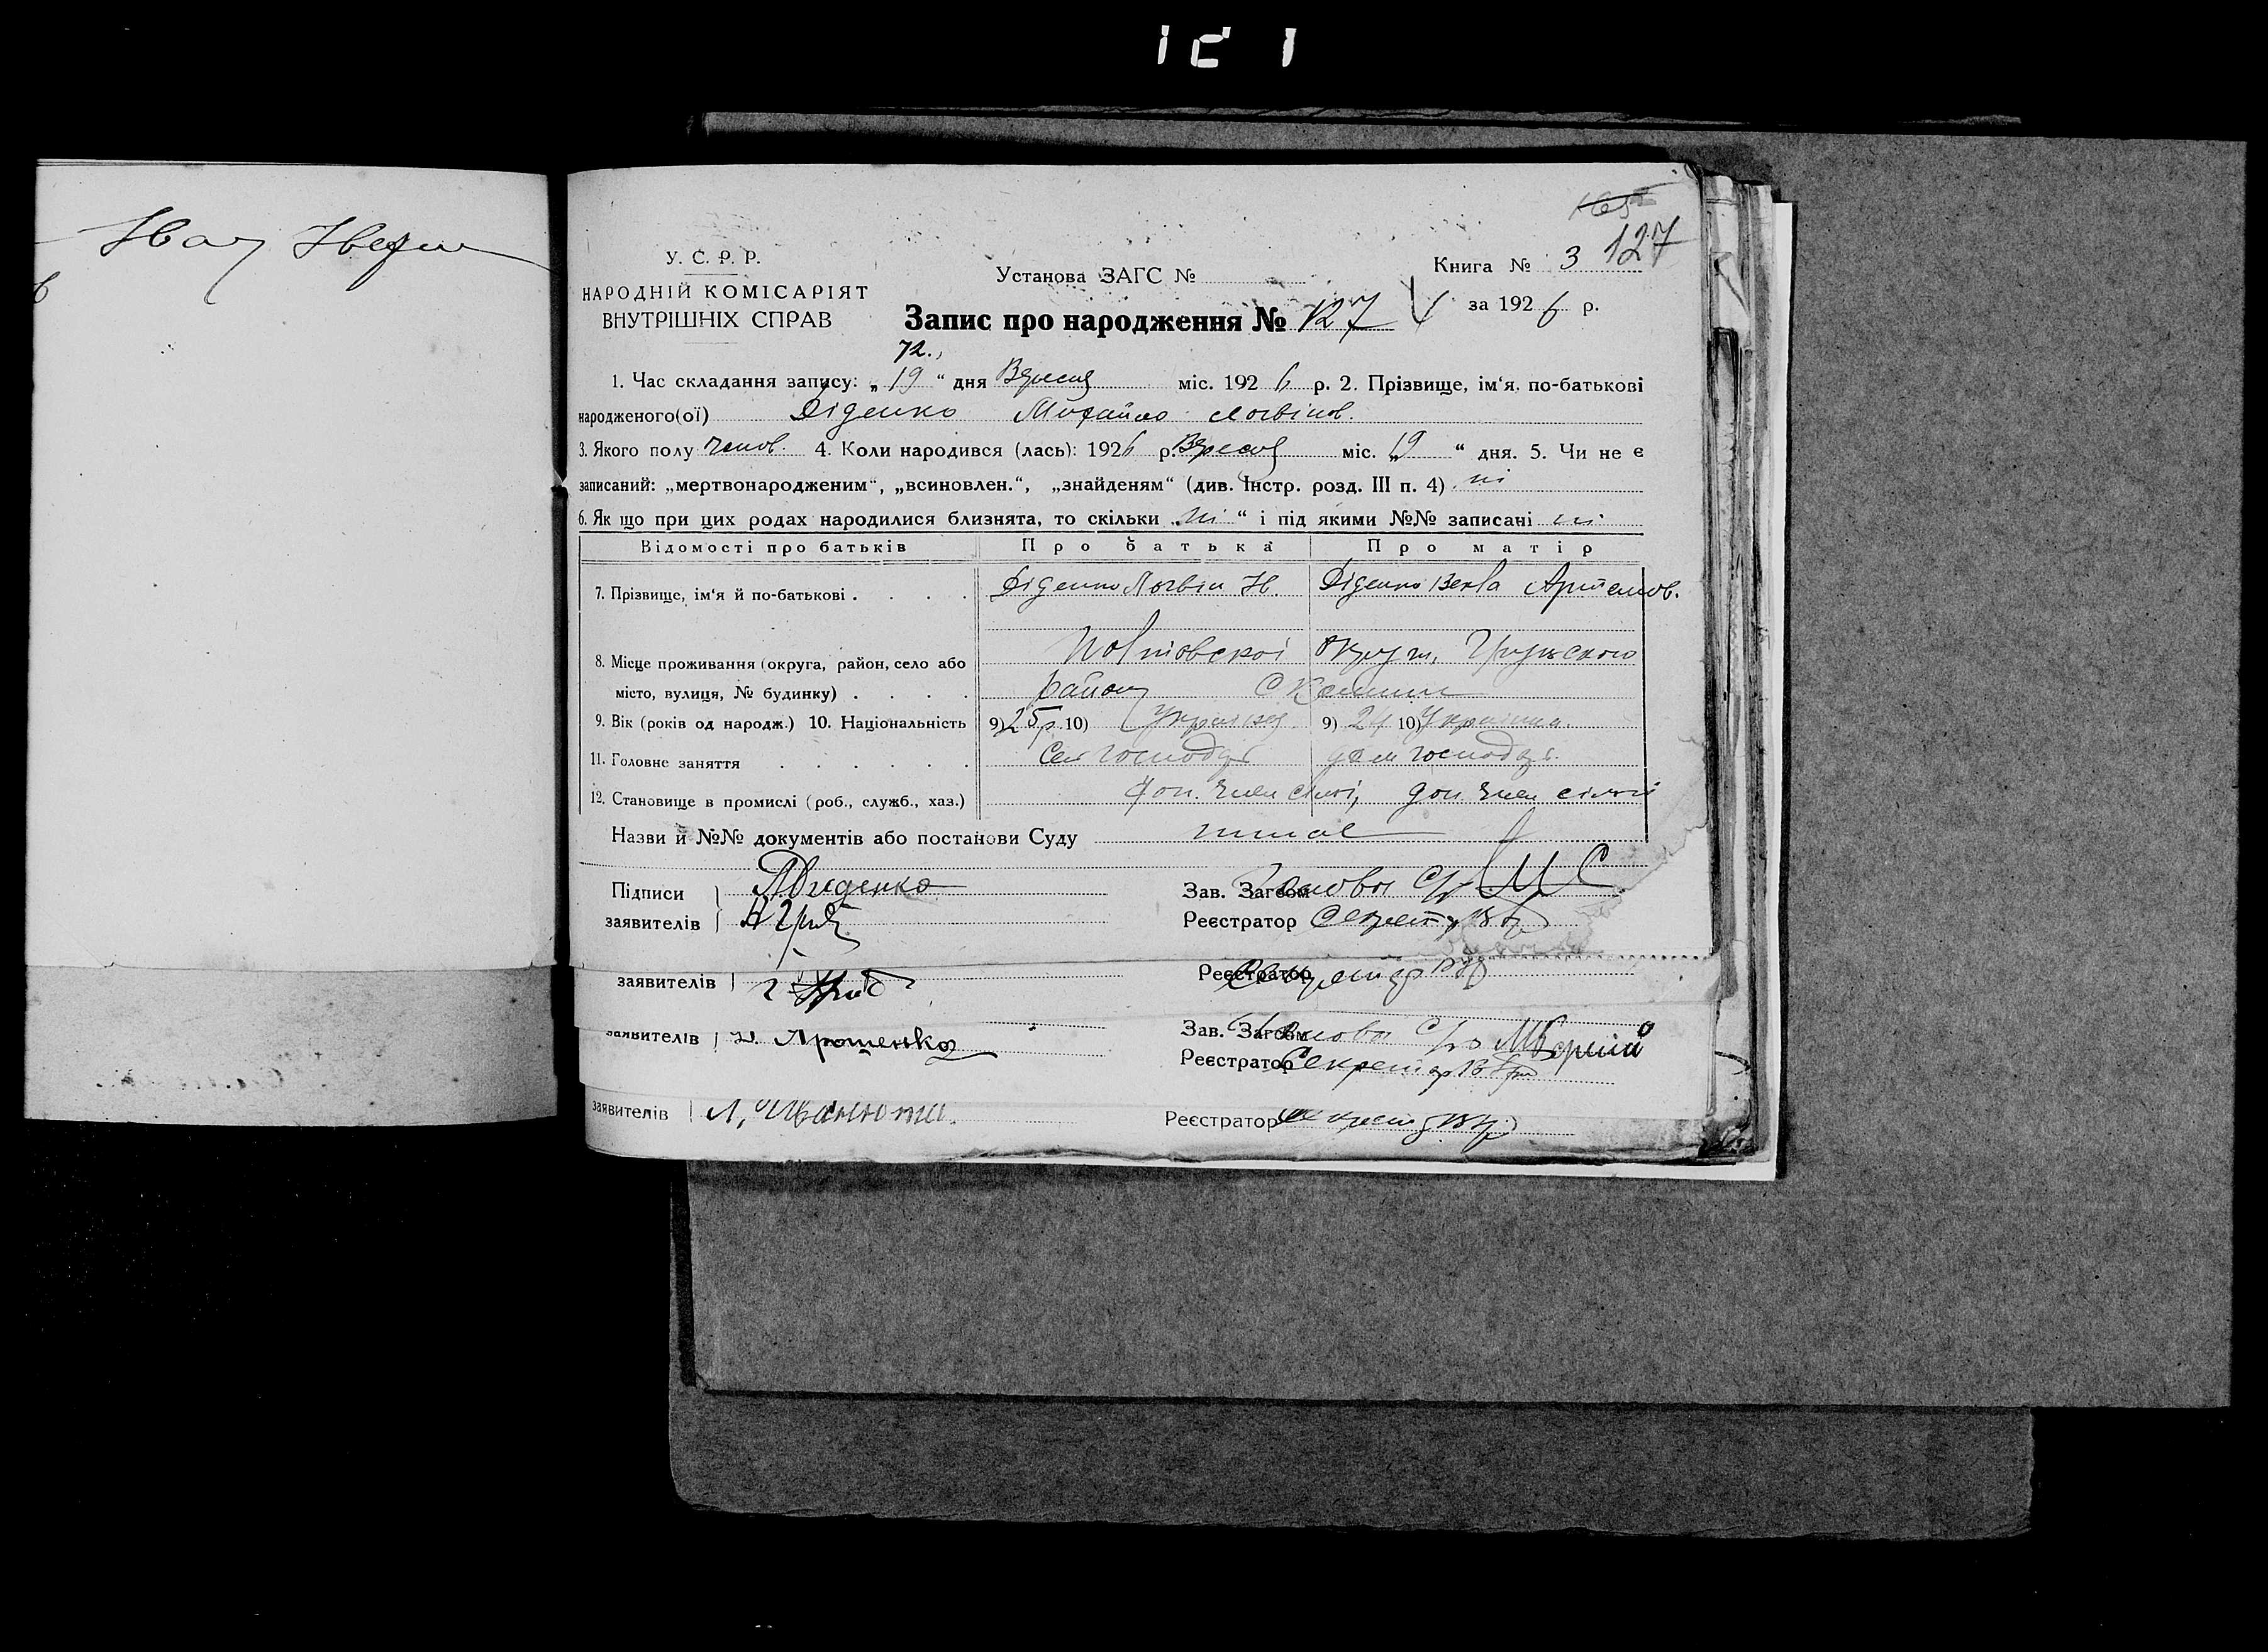 121
127
У. С. Р. Р.
НАРОДНІЙ КОМІСАРІЯТ
ВНУТРІШНІХ СПРАВ
Установа ЗАГС №
Книга № 3
за 1926 р.
Запис про народження № 127
72.
1. Час складання запису: „19“ дня Вересня міс. 1926 р. 2. Прізвище, ім‘я, по-батькові
народженого(ої) Діденко Михайло Логвінов.
3. Якого полу чолов. 4. Коли народився (лась): 1926 р. Вересня міс. „19“ дня. 5. Чи не є
записаний: „мертвонародженим“, „всиновлен.“, „знайденям“ (див. Інстр. розд. III п. 4) ні
6. Як що при цих родах народилися близнята, то скільки „ні“ і під якими №№ записані ні
Відомості про батьків Про батька Про матір
7. Прізвище, ім‘я й по-батькові . . . . Діденко Логвін Н. Діденко Артемов.
8. Місце проживання (округа, район, село або Полтовскоі округи,
місто, вулиця, № будинку) . . . . району С
9. Вік (років од народж.) 10. Національність 9) 25 р. 10) Українец 9) 24 10) Українка.
11. Головне заняття . . . . . . Сел господар дом господар.
12. Становище в промислі (роб., служб., хаз.) доп. член сімї, доп. член сімї
Назви й №№ документів або постанови Суду немає
Підписи Діденко Зав. Загсом Голова С/р
заявителів Реєстратор Секретар
заявителів Реєстратор Секретар
Зав. Загсом Голова С/р
заявителів Ярошенко
Реєстратор Секретар
заявителів Л. Реєстратор Секретар